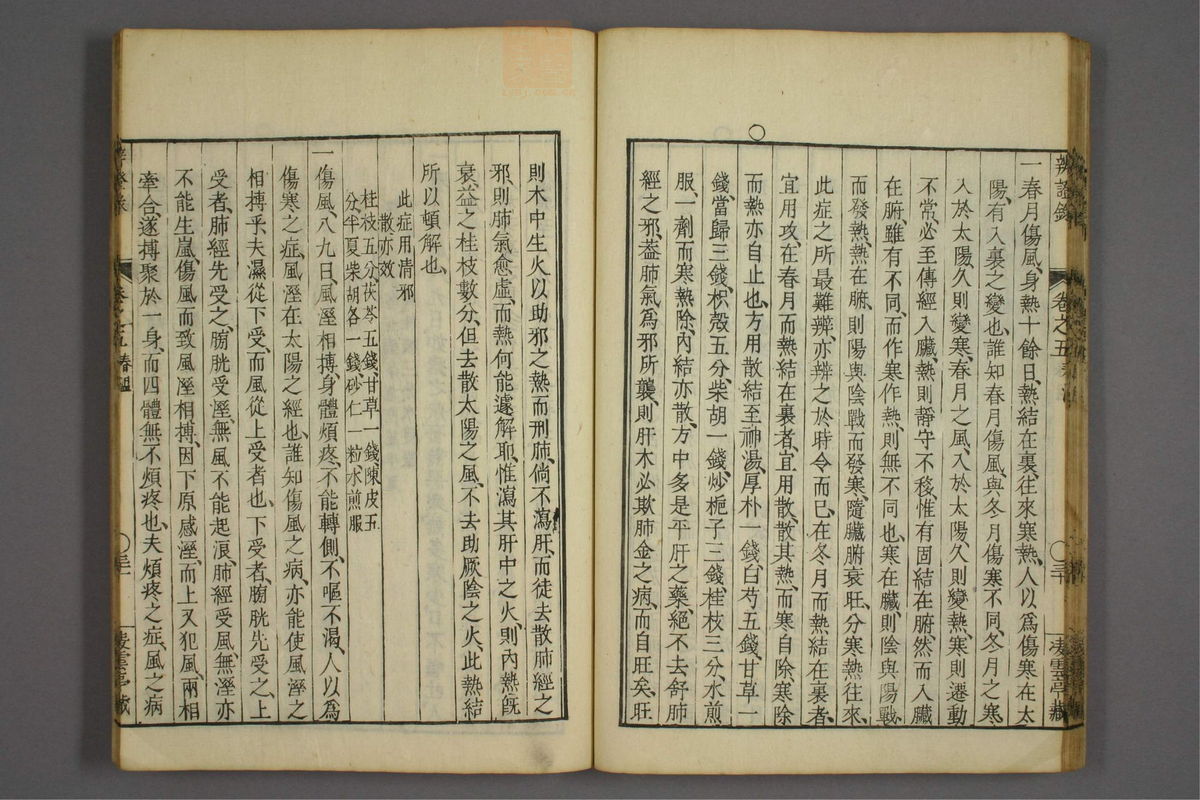 辨證錄 卷之五 春溫 三十 凌雲亭藏
一春月傷風身熱十餘日熱結在裏往來寒熱人以爲傷寒在太
陽有入裏之變也誰知春月傷風與冬月傷寒不同冬月之寒
入於太陽久則變寒春月之風入於太陽久則變熱寒則遷動
不常必至傳經入臟熱則靜守不移惟有固結在腑然而入臟
在腑雖有不同而作寒作熱則無不同也寒在臟則陰與陽戰
而發熱熱在腑則陽與陰戰而發寒隨臟腑衰旺分寒熱往來
此症之所最難辨亦辨之於時令而已在冬月而熱結在裏者
宜用攻在春月而熱結在裏者宜用散散其熱而寒自除寒除
而熱亦自止也方用散結至神湯厚朴一錢白芍五錢甘草一
錢當歸三錢枳殼五分柴胡一錢炒梔子三錢桂枝三分水煎
服一劑而寒熱除內結亦散方中多是平肝之藥絕不去舒肺
經之邪葢肺氣爲邪所襲則肝木必欺肺金之病而自旺矣旺
則木中生火以助邪之熱而刑肺倘不瀉肝而徒去散肺經之
邪則肺氣愈虛而熱何能遽解耶惟瀉其肝中之火則內熱旣
衰益之桂枝數分但去散太陽之風不去助厥陰之火此熱結
所以頓解也
此症用清邪
散亦效
桂枝五分茯苓五錢甘草一錢陳皮五
分半夏柴胡各一錢砂仁一粒水煎服
一傷風八九日風溼相搏身體煩疼不能轉側不嘔不渴人以爲
傷寒之症風溼在太陽之經也誰知傷風之病亦能使風溼之
相搏乎夫濕從下受而風從上受者也下受者膀胱先受之上
受者肺經先受之膀胱受溼無風不能起浪肺經受風無溼亦
不能生嵐傷風而致風溼相搏因下原感溼而上又犯風兩相
牽合遂搏聚於一身而四體無不煩疼也夫煩疼之症風之病
辨證錄 卷之五 春溫 三十一 凌雲亭藏